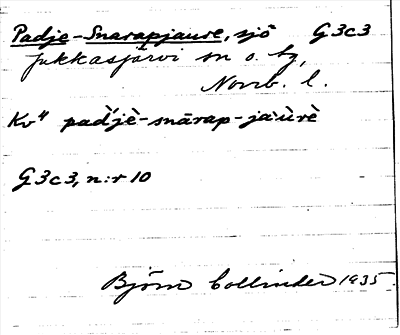 Padje-Snarapjaure, sjö G3c3
Jukkasjärvi sn o. tg,
Norrb. l.
Kv" pad̀'jè-snārap-jaùrè
G3c3, n:r 10
Björn Collinder 1935.